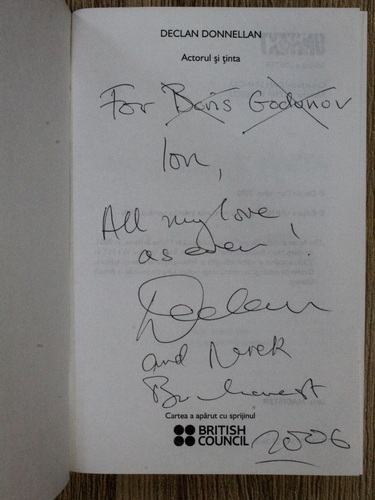 DECLAN DONNELLAN
Actorul și ținta
For Boris Godunov
Ion,
All my love,
as ever!
Declan
and Nick
Bucharest
Cartea a apărut cu sprijinul
BRITISH
COUNCIL
2006